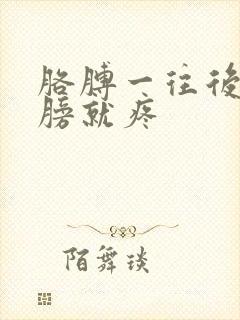 胳膊一往後
膀就疼
陌舞琰